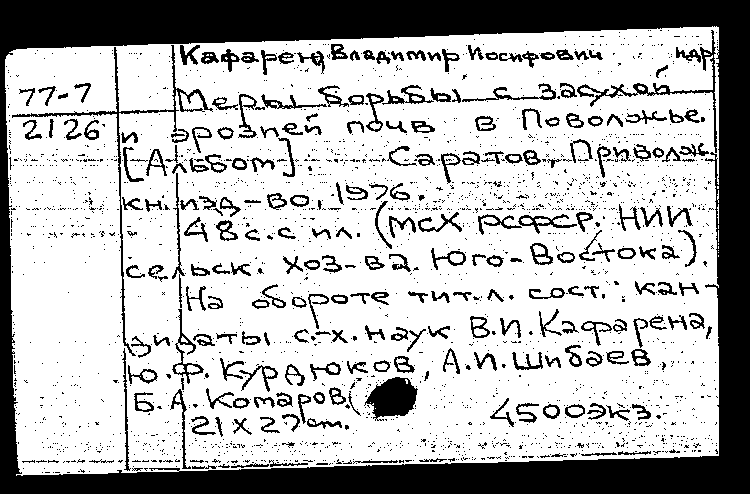 Кафарена Владимир Иосифович и др
77-7
Меры борьбы с засухой
2126
и эрозией почв в Поволжье.
[Альбом]. Саратов, Приволж.
кн. изд-во, 1976.
48 с. с ил. (МСХ РСФСР. НИИ
сельск. хоз-ва Юго-Востока).
На обороте тит. л. сост.: кан-
дидаты с.-х. наук В.И. Кафарена,
Ю.Ф. Курдюков, А.И. Шибаев,
Б.А. Комаров.
21 х 27 см. 4500 экз.